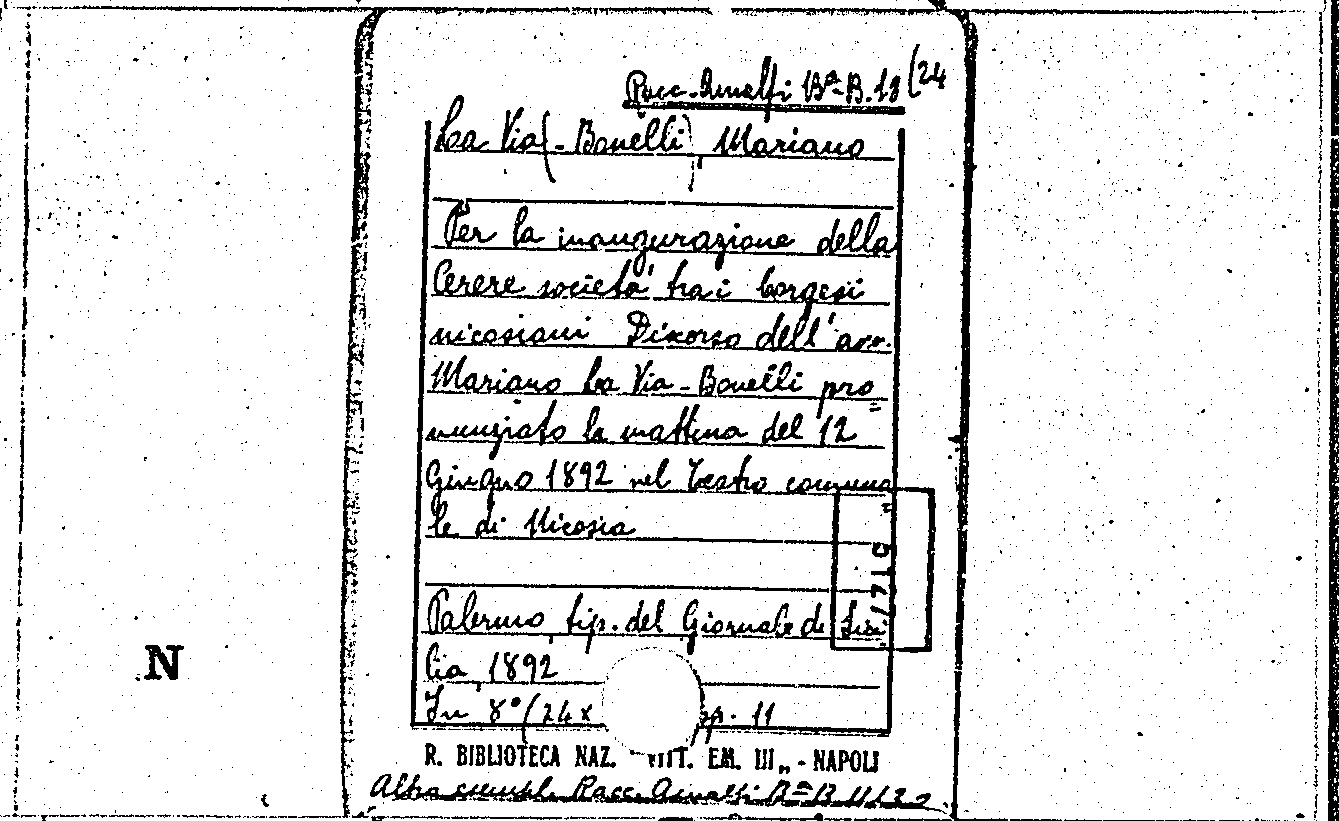 Racc. Amalfi Bª B. 18 (24
La Via (-Bonelli), Mariano
Per la inaugurazione della
Cerere società tra i borgesi
nicosiani Discorso dell'avv.
Mariano La Via-Bonelli pro=
nunziato la mattina del 12
Giugno 1892 nel Teatro comuna=
le di Nicosia
Palermo, tip. del Giornale di Sici
lia, 1892
In 8° (24 x pp. 11
R. BIBLIOTECA NAZ. "VITT. EM. III„ - NAPOLI
Altro esempl. Racc. Amalfi Bª B
N